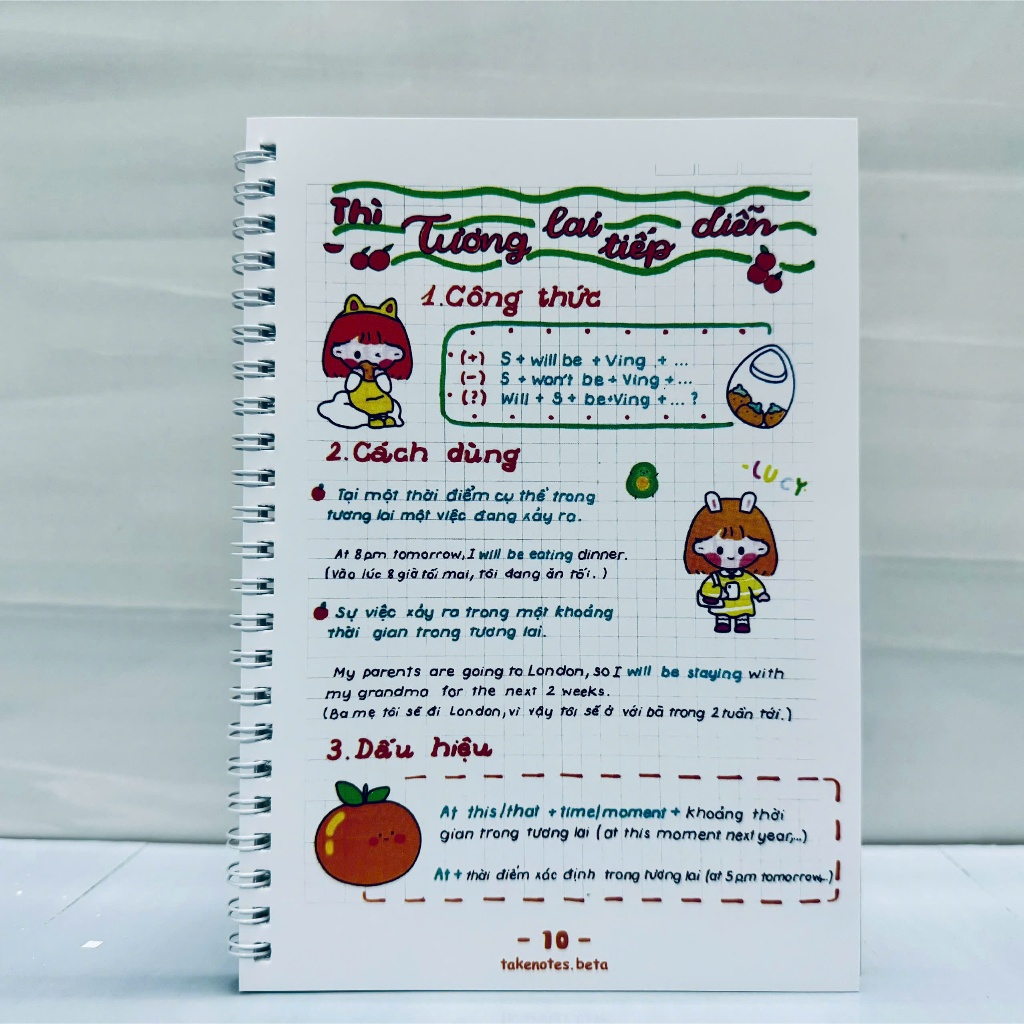 Thì Tương lai tiếp diễn
1. Công thức
(+) S + will be + Ving + ...
(-) S + won't be + Ving + ...
(?) Will + S + be+Ving + ... ?
2. Cách dùng
LUCY
Tại một thời điểm cụ thể trong
tương lai một việc đang xảy ra.
At 8pm tomorrow, I will be eating dinner.
(Vào lúc 8 giờ tối mai, tôi đang ăn tối.)
Sự việc xảy ra trong một khoảng
thời gian trong tương lai.
My parents are going to London, so I will be staying with
my grandma for the next 2 weeks.
(Ba mẹ tôi sẽ đi London, vì vậy tôi sẽ ở với bà trong 2 tuần tới.)
3. Dấu hiệu
At this/that + time/moment + khoảng thời
gian trong tương lai (at this moment next year,...)
At + thời điểm xác định trong tương lai (at 5pm tomorrow...)
- 10 -
takenotes.beta